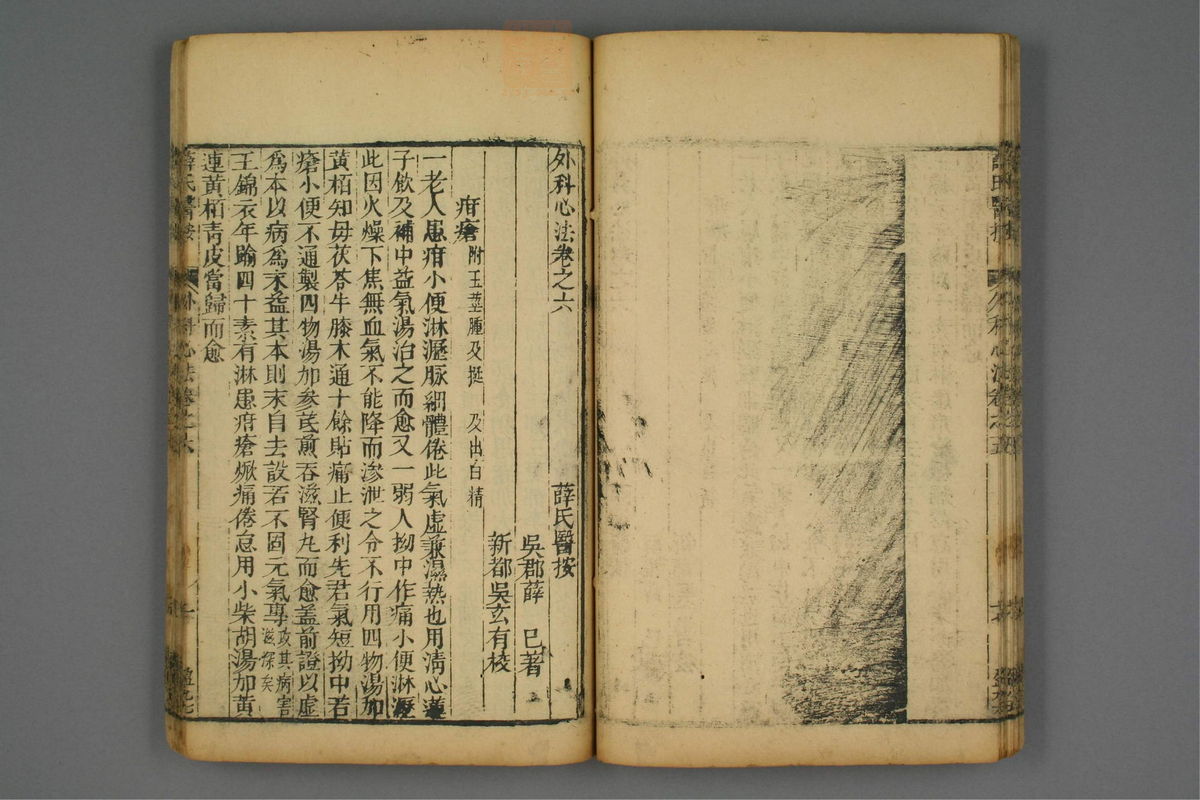 外科心法卷之六
薛氏醫按
吳郡薛 已著
新都吳玄有校
疳瘡附玉莖腫及挺 及出白精
一老人患疳小便淋瀝脉細體倦此氣虛兼濕熱也用清心蓮
子飲及補中益氣湯治之而愈又一弱人拗中作痛小便淋瀝
此因火燥下焦無血氣不能降而滲泄之令不行用四物湯加
黃栢知毋茯苓牛膝木通十餘貼痛止便利先君氣短拗中若
瘡小便不通製四物湯加參芪煎吞滋腎丸而愈蓋前證以虛
為本以病為末益其本則末自去設若不固元氣專攻其病害滋深矣
王錦衣年踰四十素有淋患疳瘡焮痛倦怠用小柴胡湯加黃
連黃栢青皮當歸而愈
薛氏醫按
外科心法卷之六